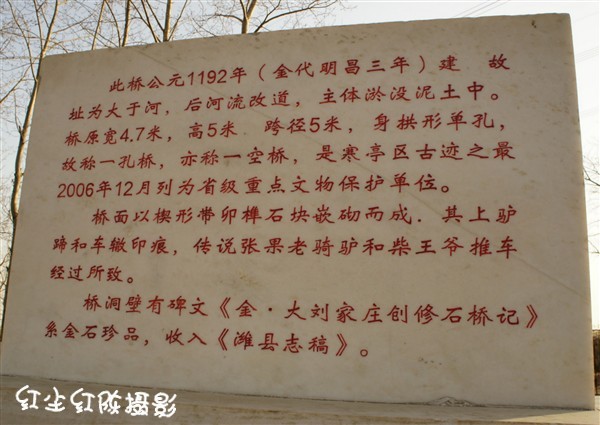 此桥公元1192年（金代明昌三年）建 故
址为大于河，后河流改道，主体淤没泥土中。
桥原宽4.7米，高5米 跨径5米，身拱形单孔，
故称一孔桥，亦称一空桥，是寒亭区古迹之最
2006年12月列为省级重点文物保护单位。
桥面以楔形带卯榫石块嵌砌而成．其上驴
蹄和车辙印痕，传说张果老骑驴和柴王爷推车
经过所致。
桥洞壁有碑文《金·大刘家庄创修石桥记》
系金石珍品，收入《潍县志稿》。